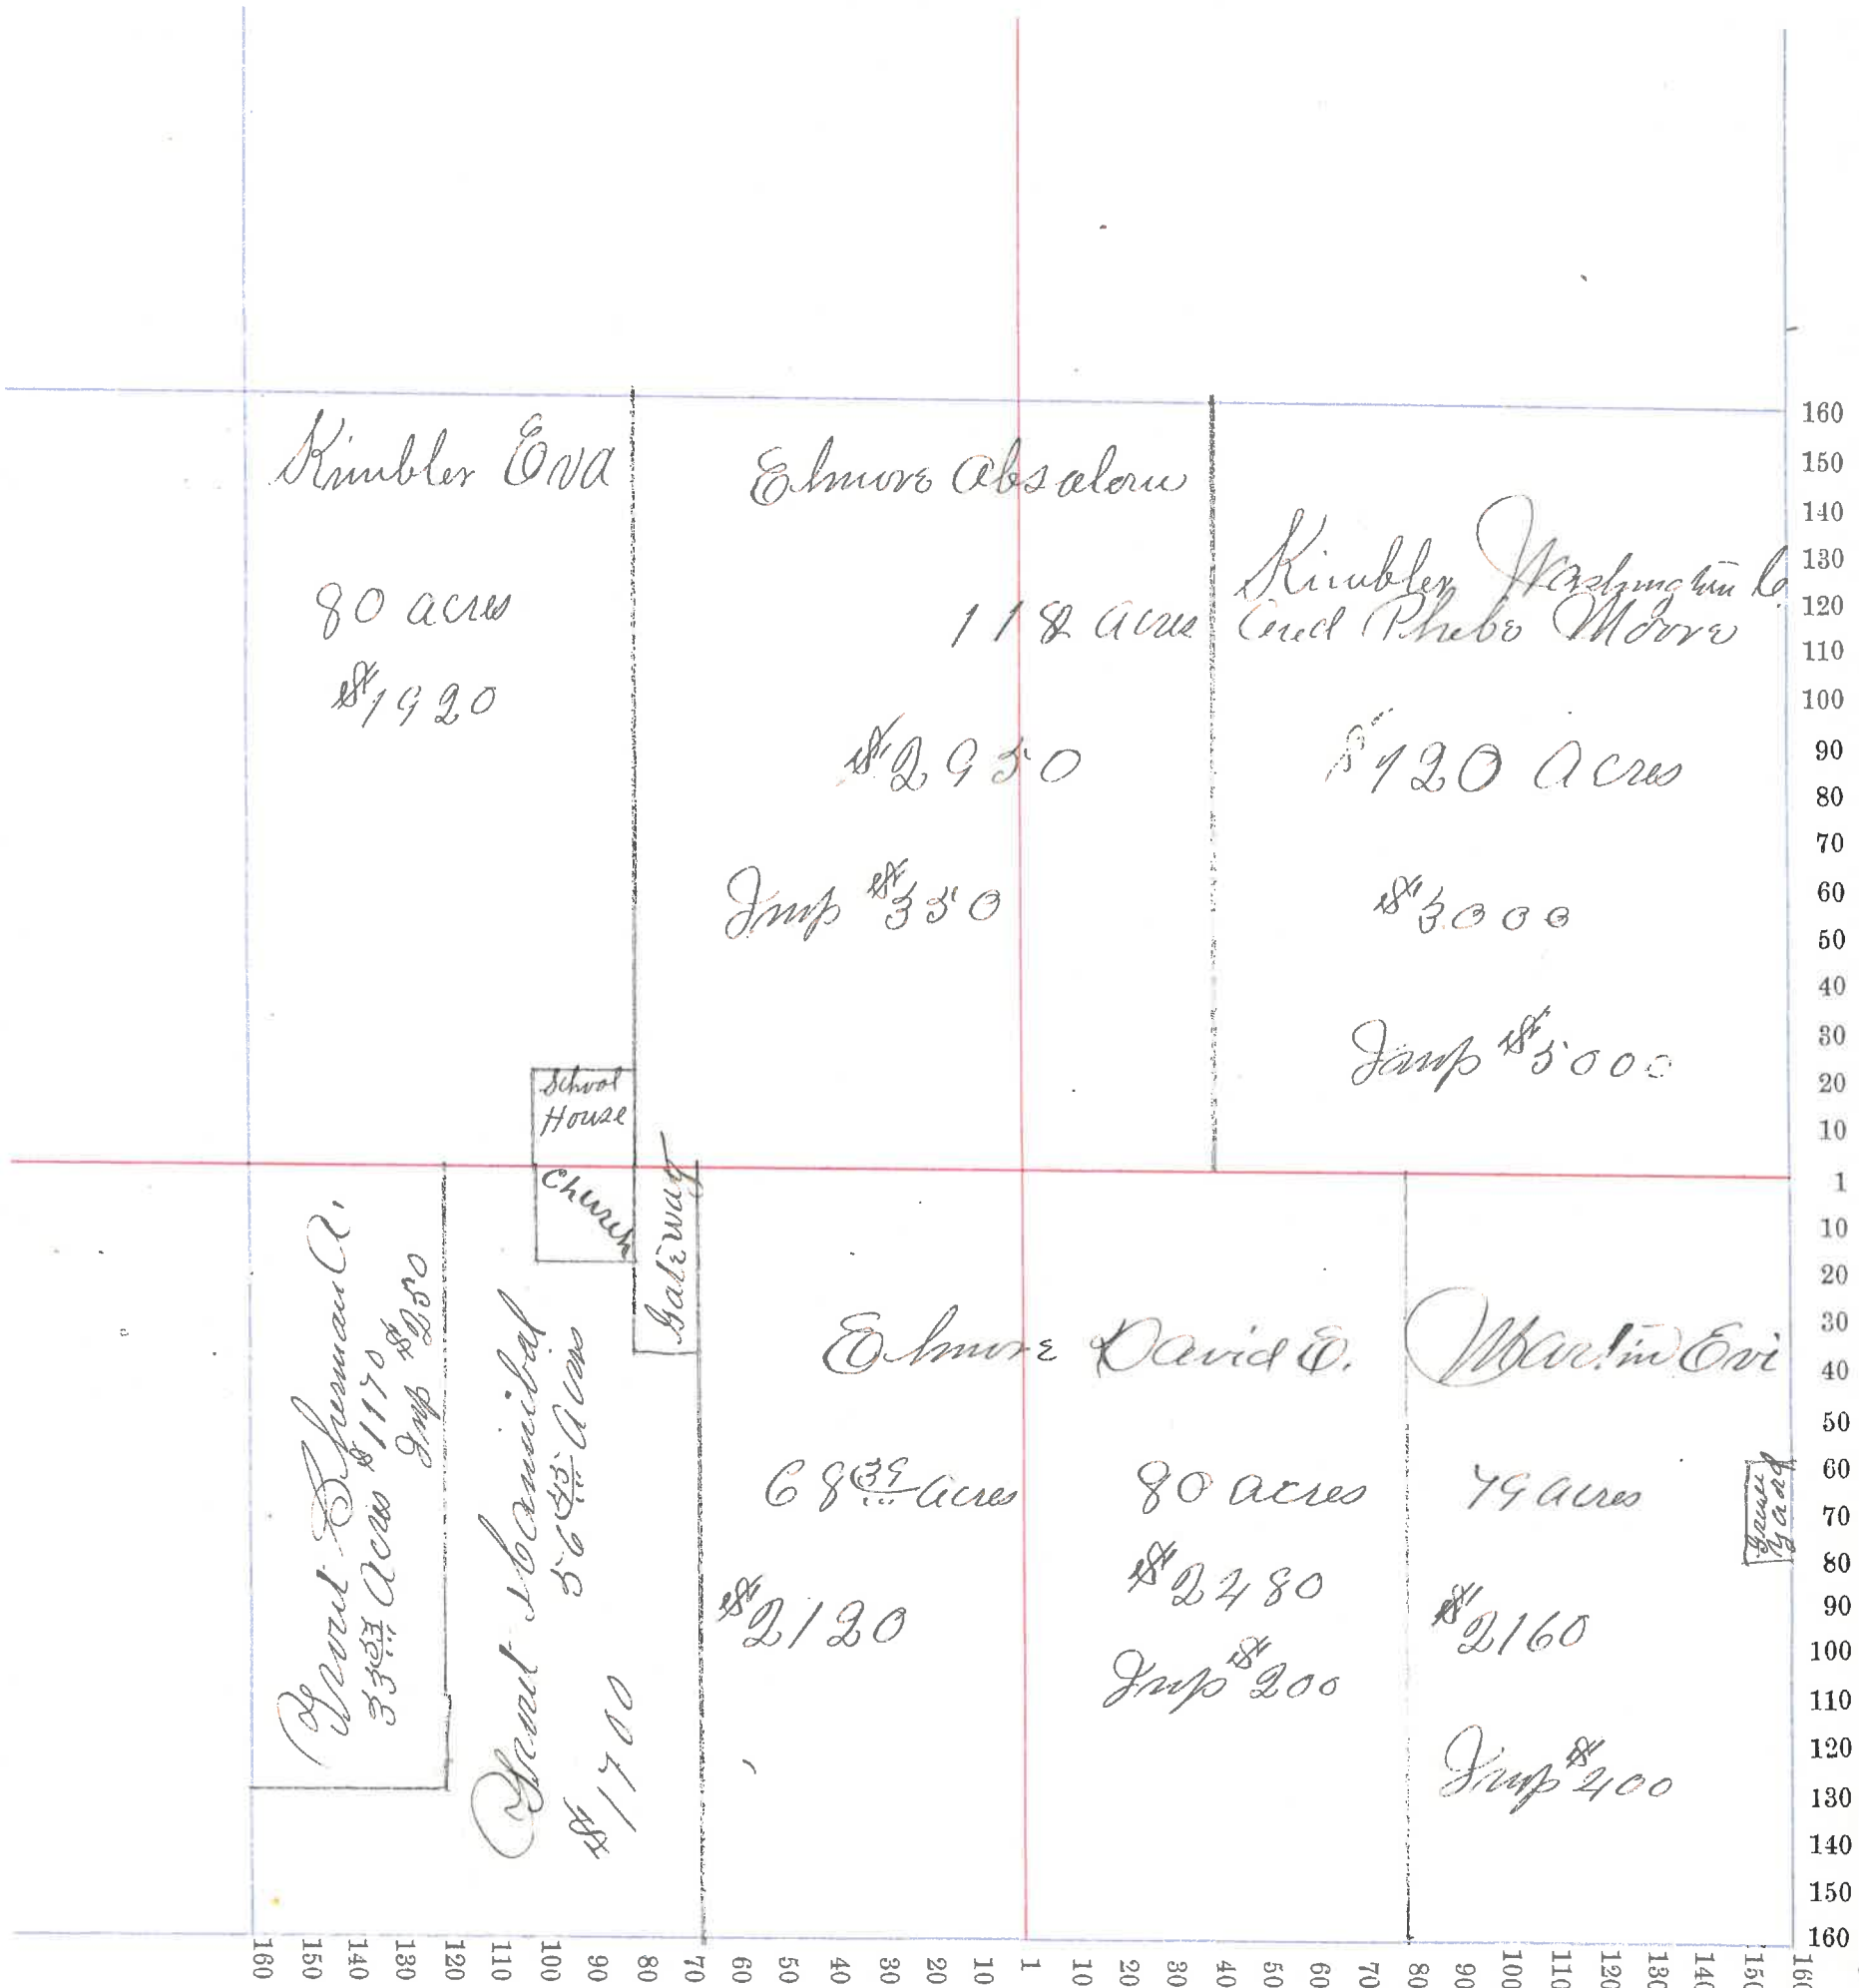 Kimbler Eva
80 acres
$1920
Elmore Absalom
118 acres
$2950
Imp $350
Kimbler Washington C.
and Phebe Moore
120 Acres
$3000
Imp $5000
School
House
Church
Gateway
Sherman A.
33 53 Acres $1170
Imp $250
Hannibal
56 45 Acres
$1700
Elmore David E.
68 39 acres
$2120
80 acres
$2480
Imp $200
Martin Evi
79 acres
$2160
Imp $400
Grave
Yard
160
150
140
130
120
110
100
90
80
70
60
50
40
30
20
10
1
10
20
30
40
50
60
70
80
90
100
110
120
130
140
150
160
160 150 140 130 120 110 100 90 80 70 60 50 40 30 20 10 1 10 20 30 40 50 60 70 80 90 100 110 120 130 140 150 160